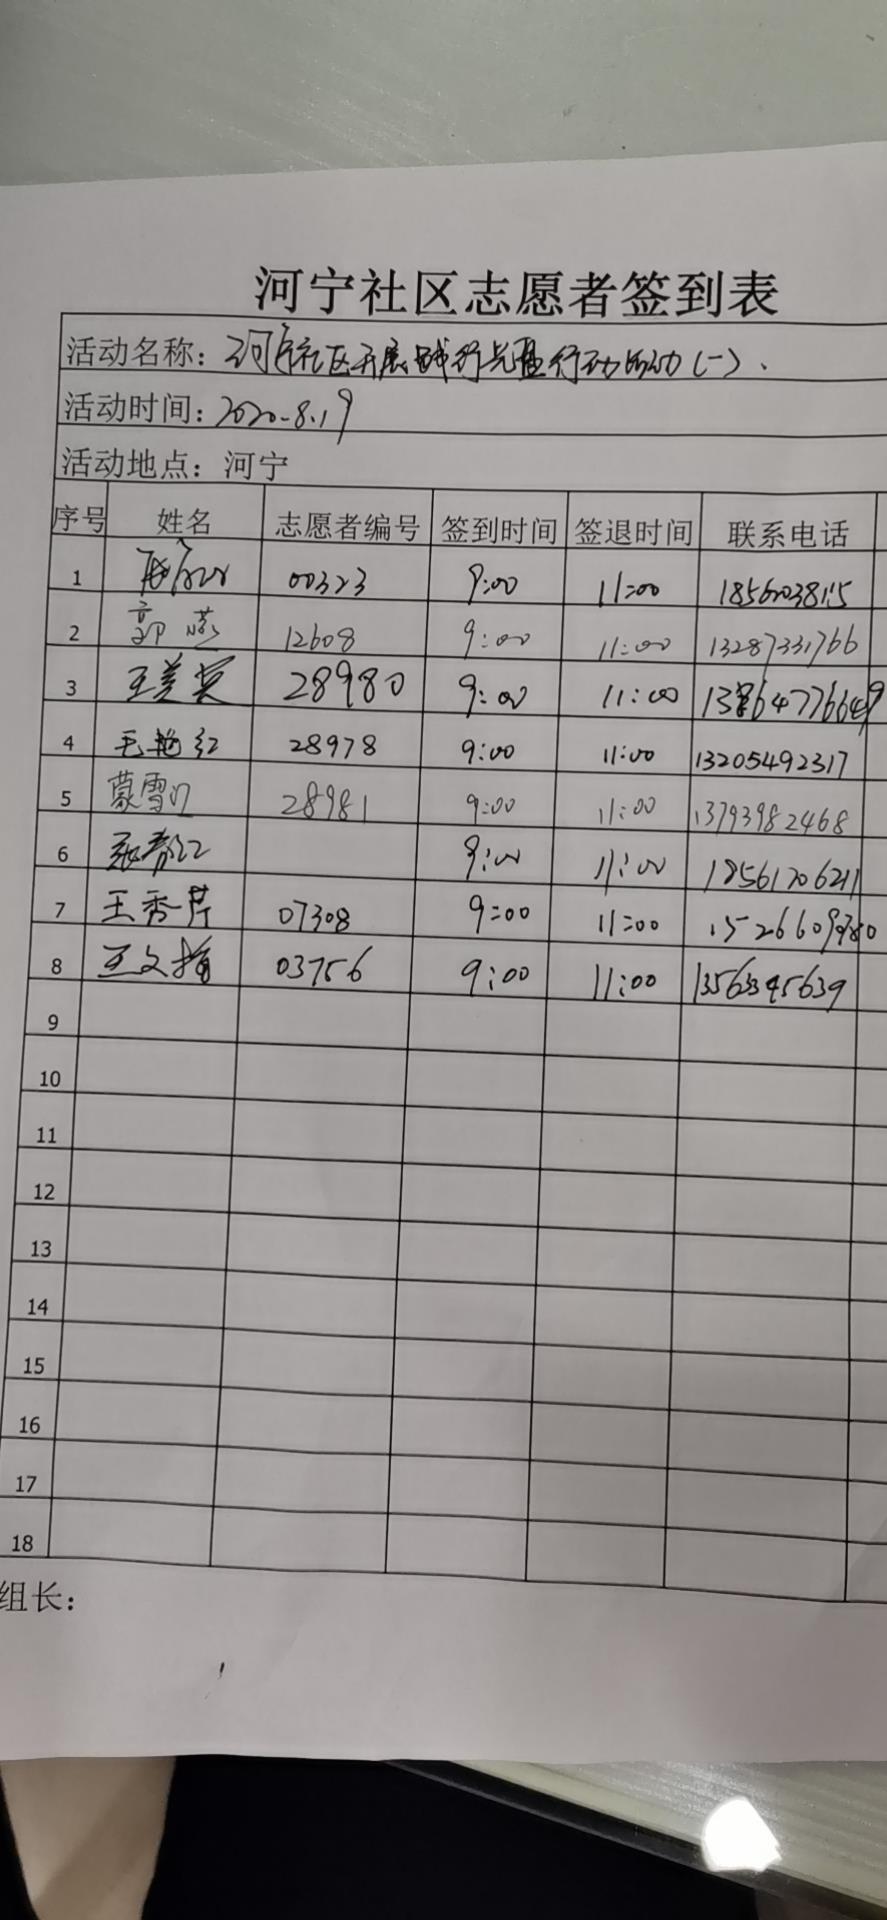 河宁社区志愿者签到表
活动名称：河宁社区开展践行光盘行动活动（一）.
活动时间：2020.8.19
活动地点：河宁
序号 姓名 志愿者编号 签到时间 签退时间 联系电话
1 00323 9:00 11:00
2 郭燕 12608 9:00 11:00 13287331766
3 王美英 28980 9:00 11:00
4 毛艳红 28978 9:00 11:00 13205492317
5 蒙雪 28981 9:00 11:00 13793982468
6 9:00 11:00 18561706211
7 王秀芹 07308 9:00 11:00
8 王文梅 03756 9:00 11:00 13563945639
9
10
11
12
13
14
15
16
17
18
组长：